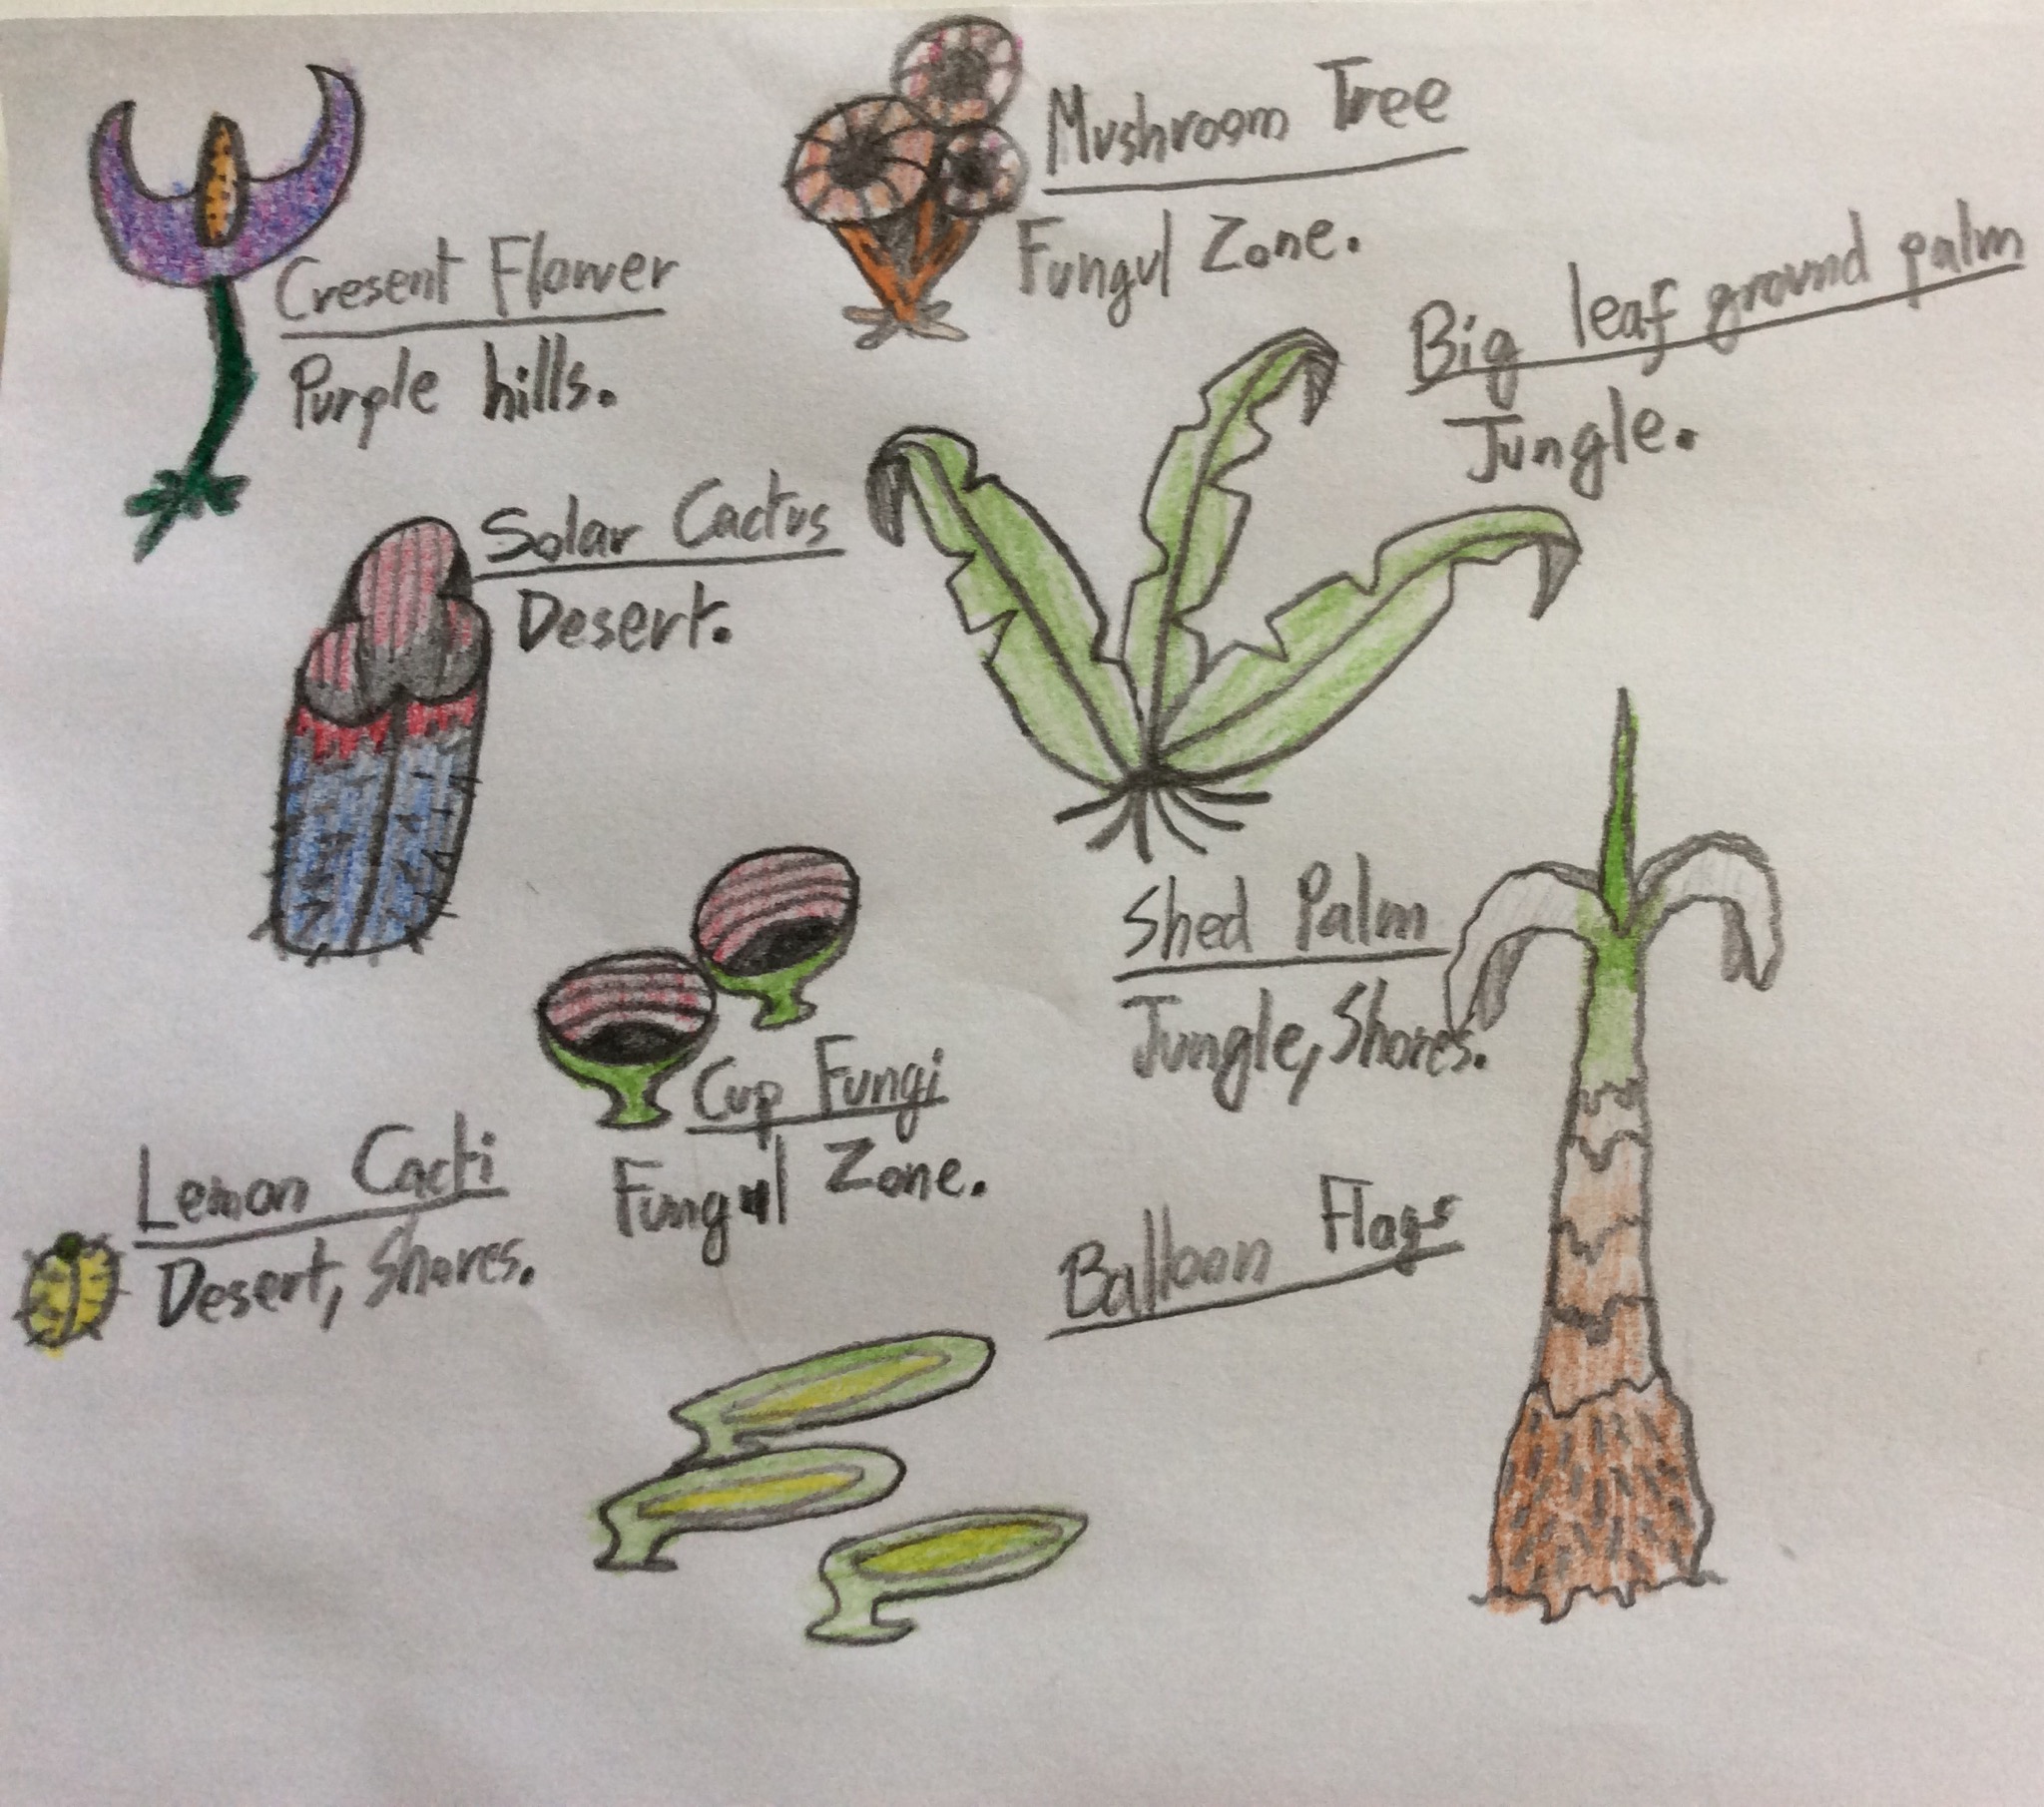 Mushroom Tree
Fungul Zone.
Cresent Flower
Purple hills.
Big leaf ground palm
Jungle.
Solar Cactus
Desert.
Shed Palm
Jungle, Shores.
Cup Fungi
Fungul Zone.
Lemon Cacti
Desert, Shores.
Balloon Flags